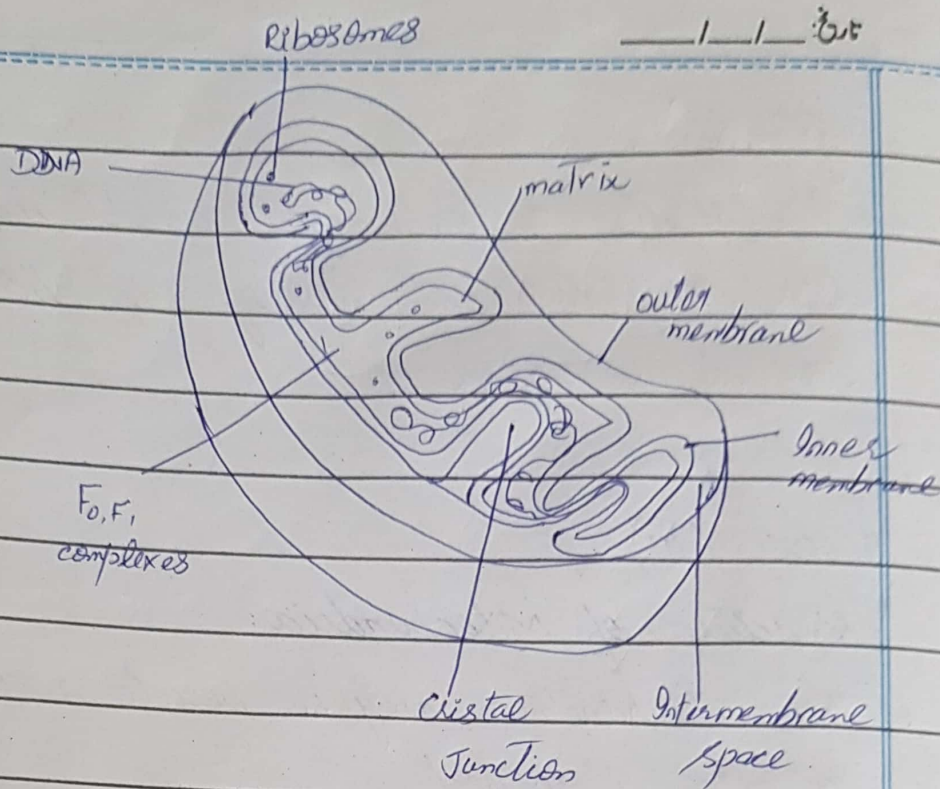 Ribosomes
___/___/___ :تاریخ
DNA
matrix
outer
membrane
Inner
membrane
F0, F1
complexes
Cristal
Junction
Intermembrane
space